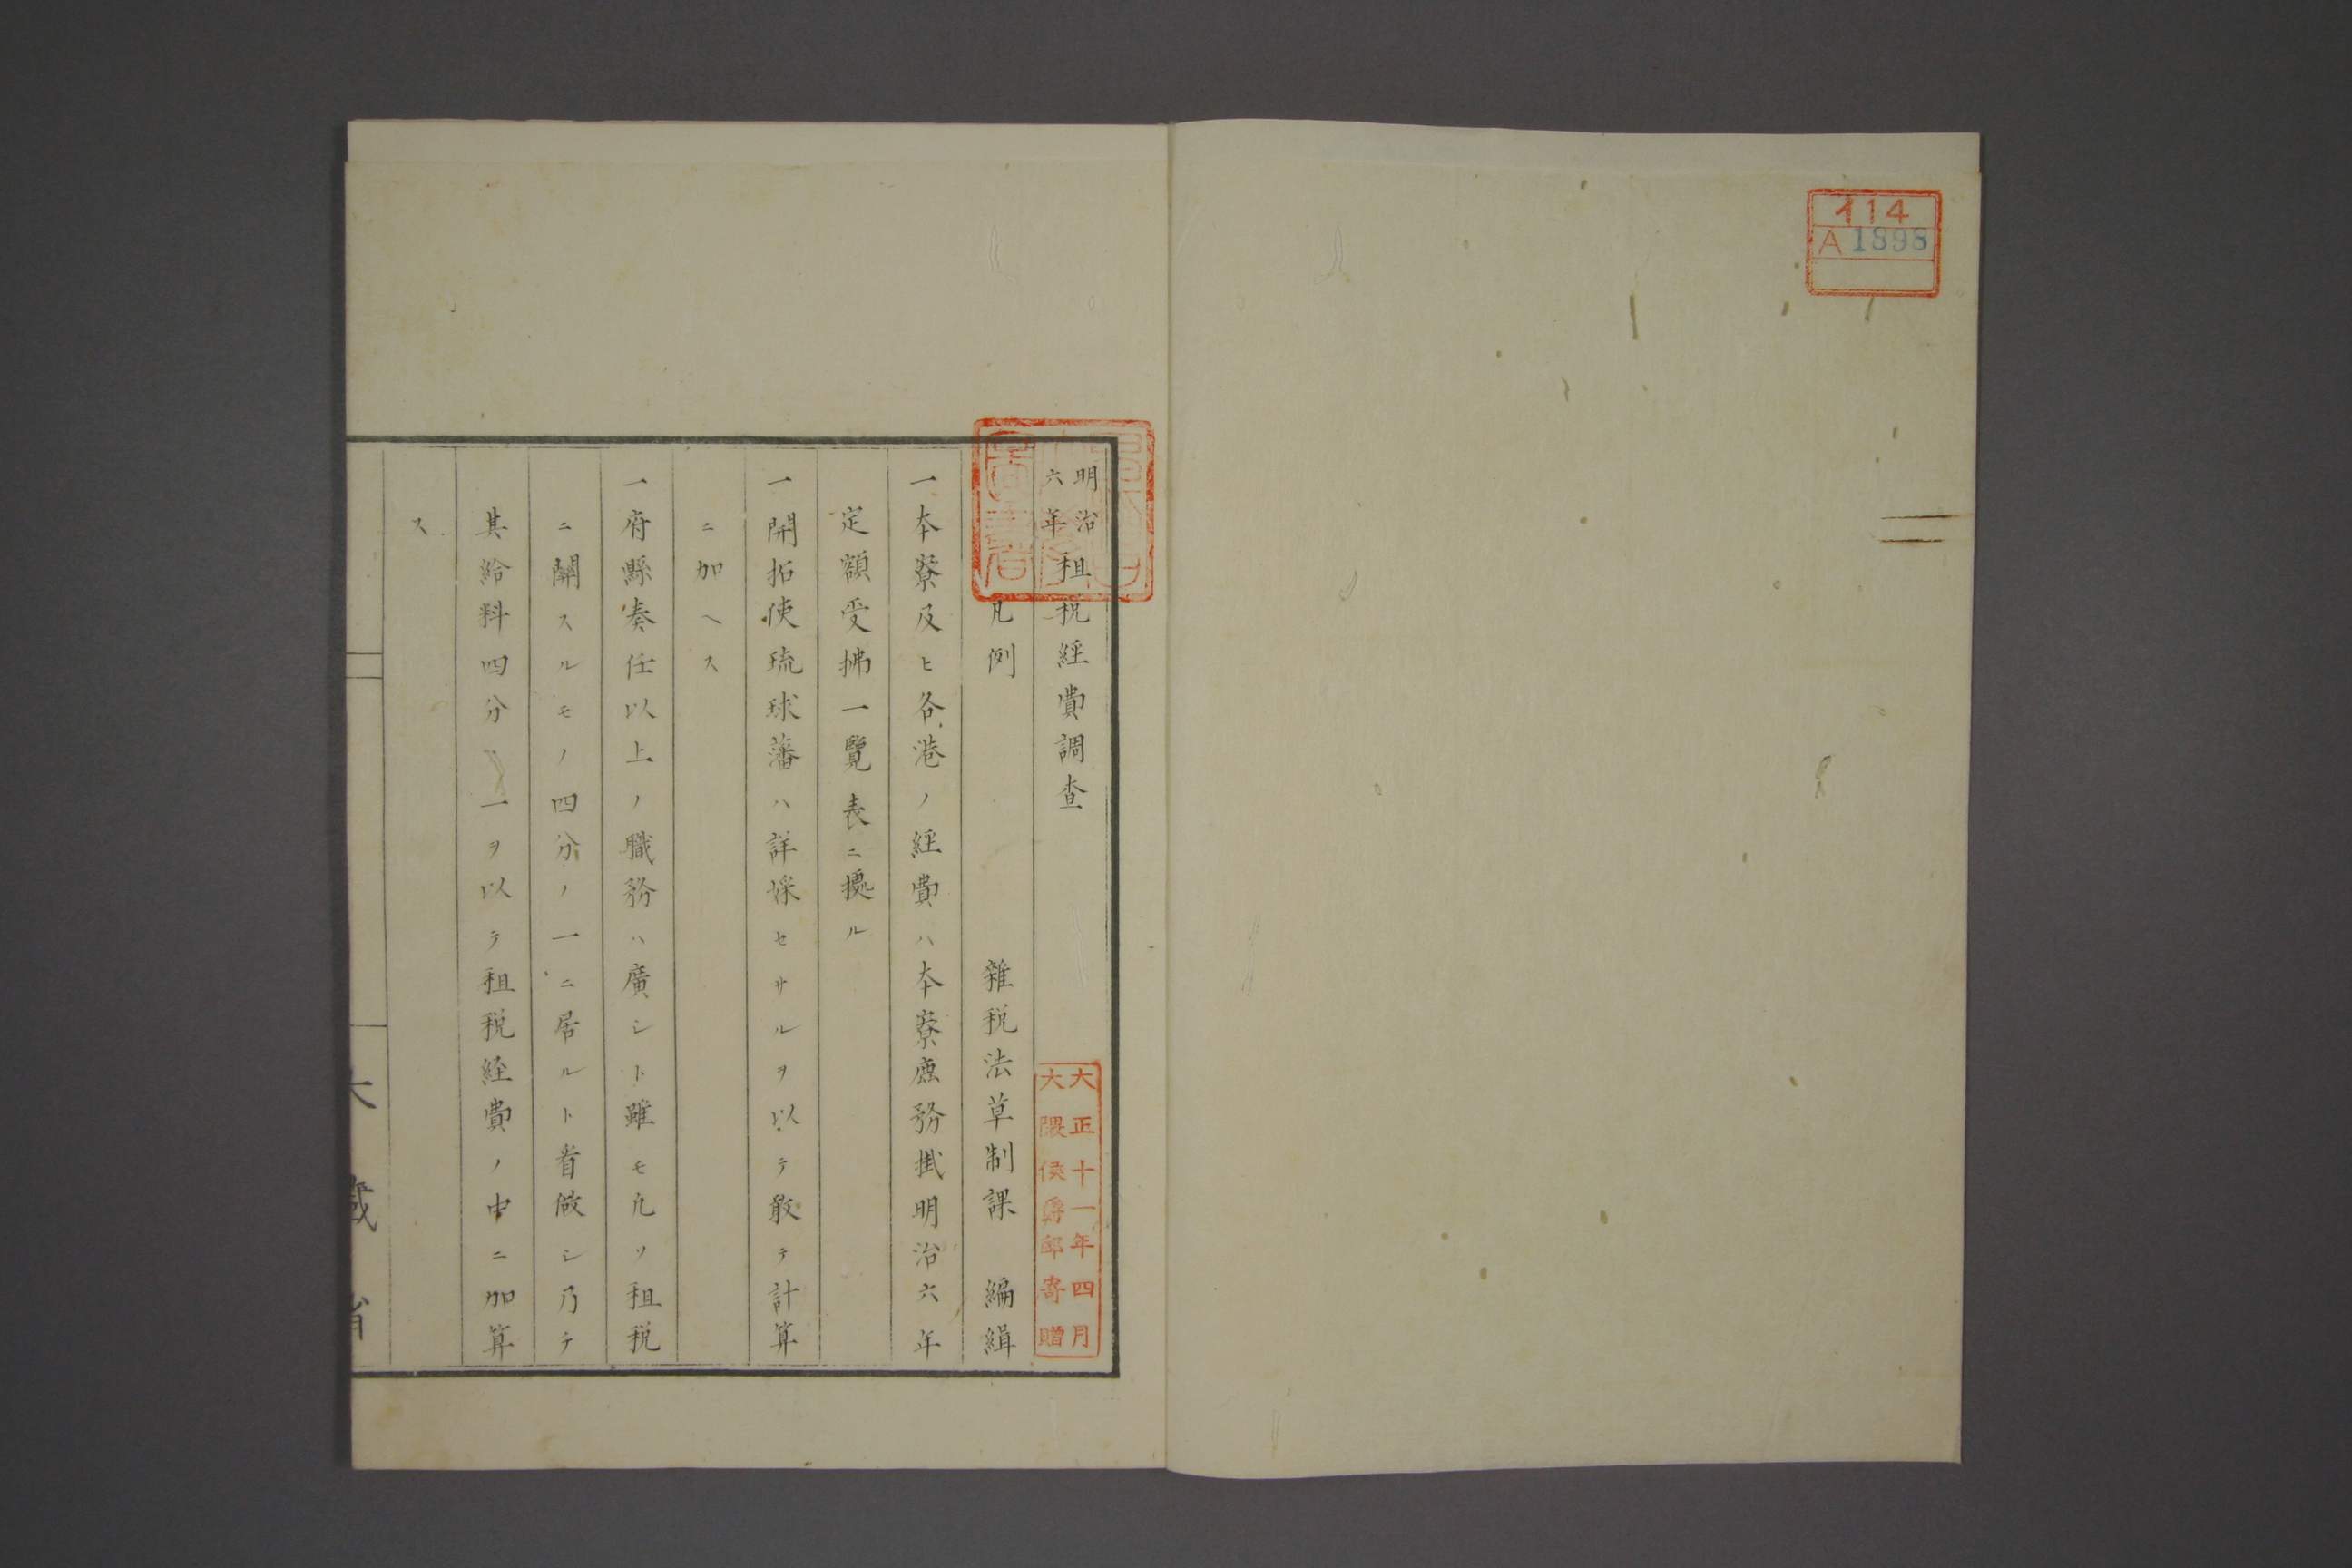 イ14
A 1898
明治六年租税経費調査
凡例
雜税法草制課 編緝
一本寮及ヒ各港ノ経費ハ本寮庶務掛明治六年
定額受拂一覽表ニ據ル
一開拓使琉球藩ハ詳悉セサルヲ以テ敢テ計算
ニ加ヘス
一府縣奏任以上ノ職務ハ廣シト雖モ凡ソ租税
ニ關スルモノ四分ノ一ニ居ルト看做シ乃チ
其給料四分ノ一ヲ以テ租税経費ノ中ニ加算
ス
大正十一年四月
大隈侯爵邸寄贈
大藏省